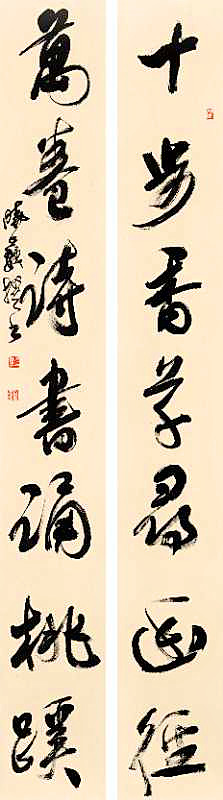 十步香草尋幽徑
萬卷詩書誦桃蹊